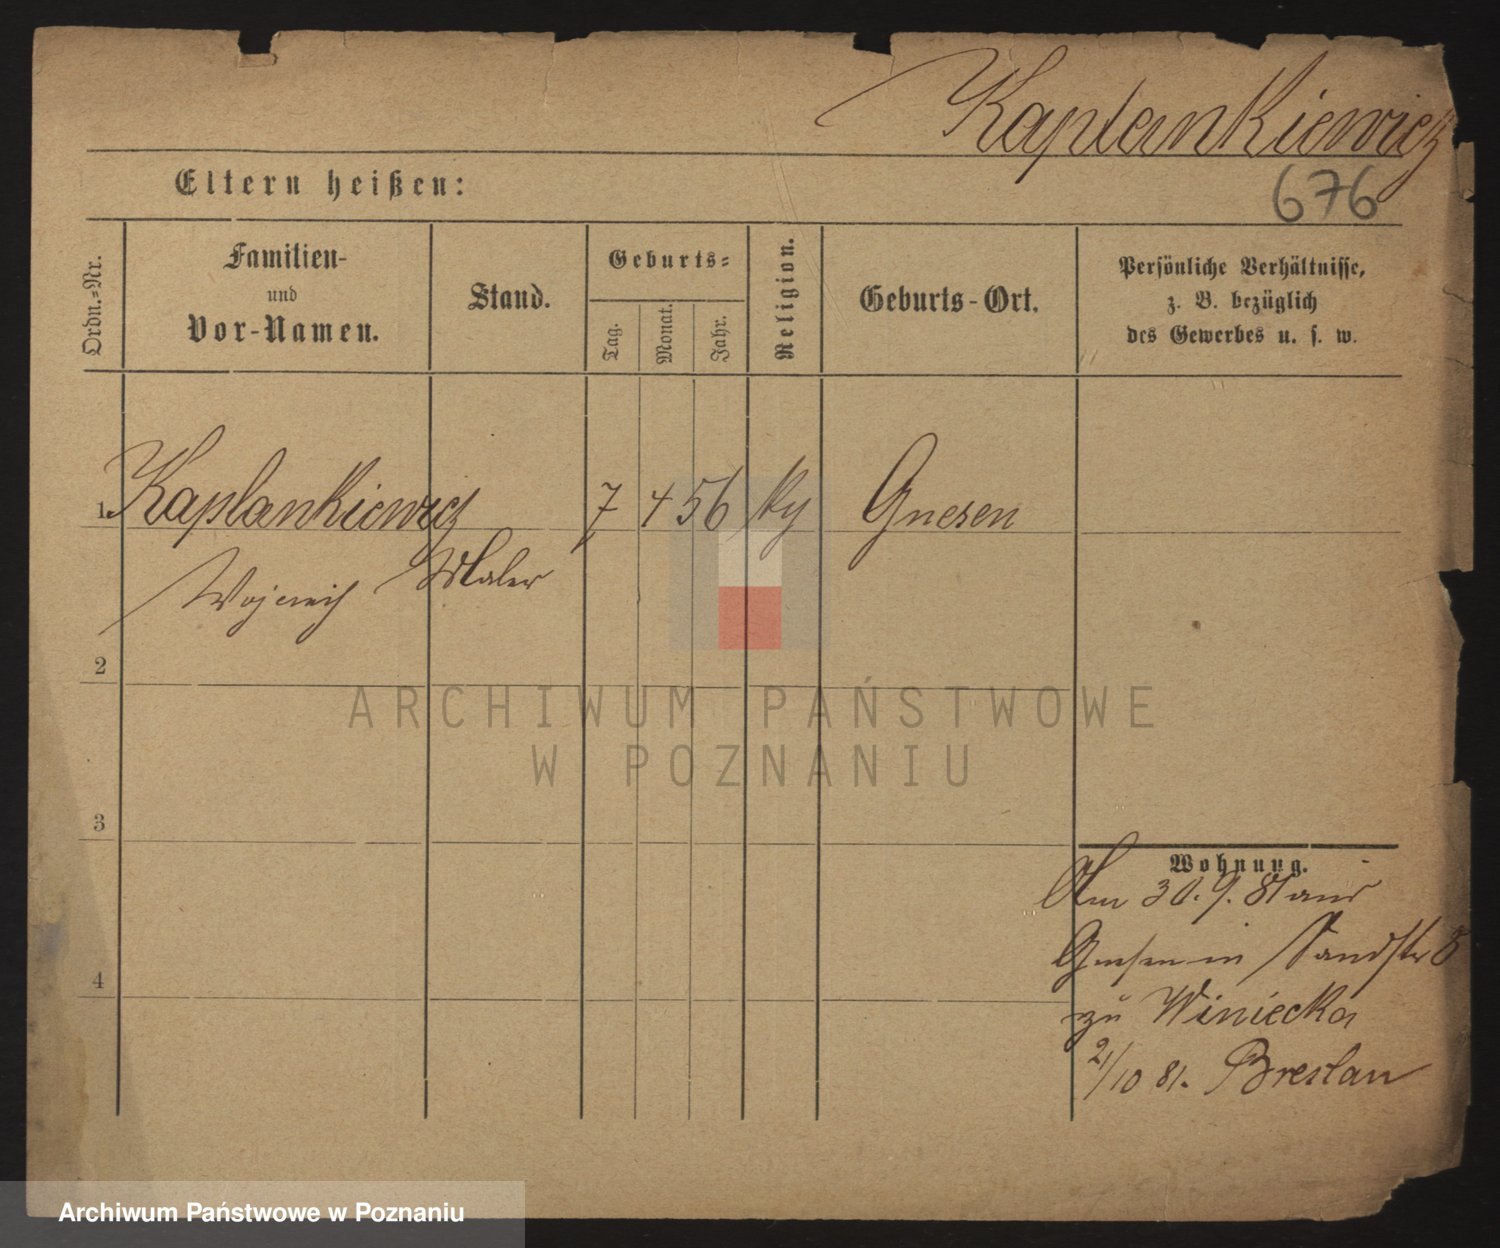 Kaplankiewicz
676
Eltern heißen:
Ordn.-Nr.
Familien-
und
Vor-Namen.
Stand.
Geburts-
Tag.
Monat.
Jahr.
Religion.
Geburts-Ort.
Persönliche Verhältnisse,
z. B. bezüglich
des Gewerbes u. s. w.
1. Kaplankiewicz 7 4 56 Gnesen
Maler
2
3
4
Wohnung.
Am 30.9.81 aus
Gnesen in Sandstr 8
zu Winiecka
2/10 81. Breslau
ARCHIWUM PAŃSTWOWE
W POZNANIU
Archiwum Państwowe w Poznaniu